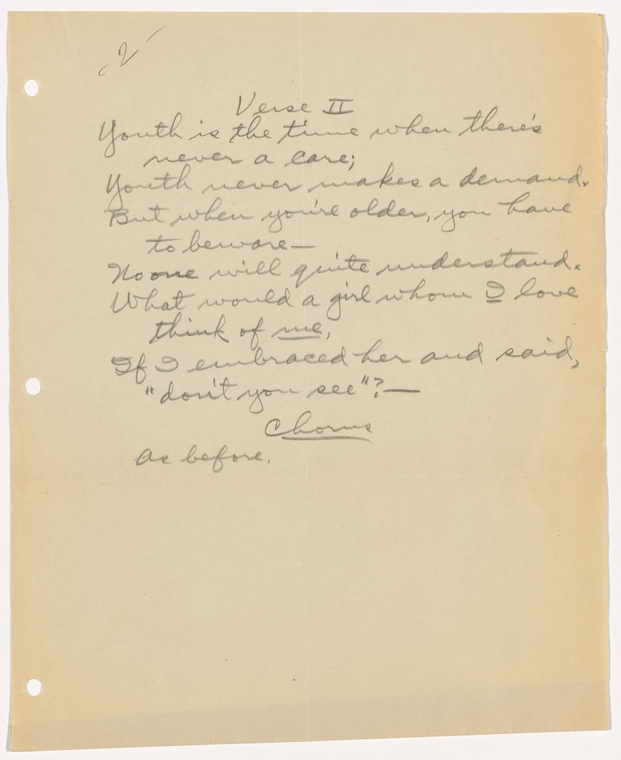 -2-
Verse II
Youth is the time when there's
never a care;
Youth never makes a demand.
But when you're older, you have
to beware—
No one will quite understand.
What would a girl whom I love
think of me,
If I embraced her and said,
"don't you see"?—
Chorus
As before.